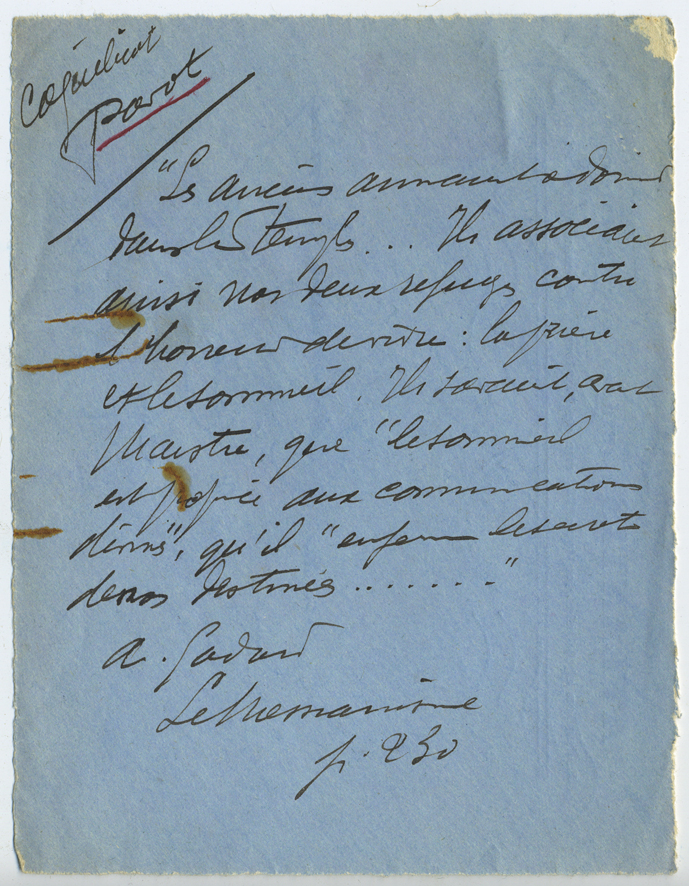 Coquelicot
pavot
"Les anciens aimaient à dormir
dans les Temples... Ils associaient
ainsi nos deux refuges contre
l'horreur de vivre : la prière
et le sommeil. Ils savaient, avant
Maistre, que "le sommeil
est propice aux communications
divines", qu'il "enferme le secret
de nos destinées ......."
A. Godard
Le
p. 230